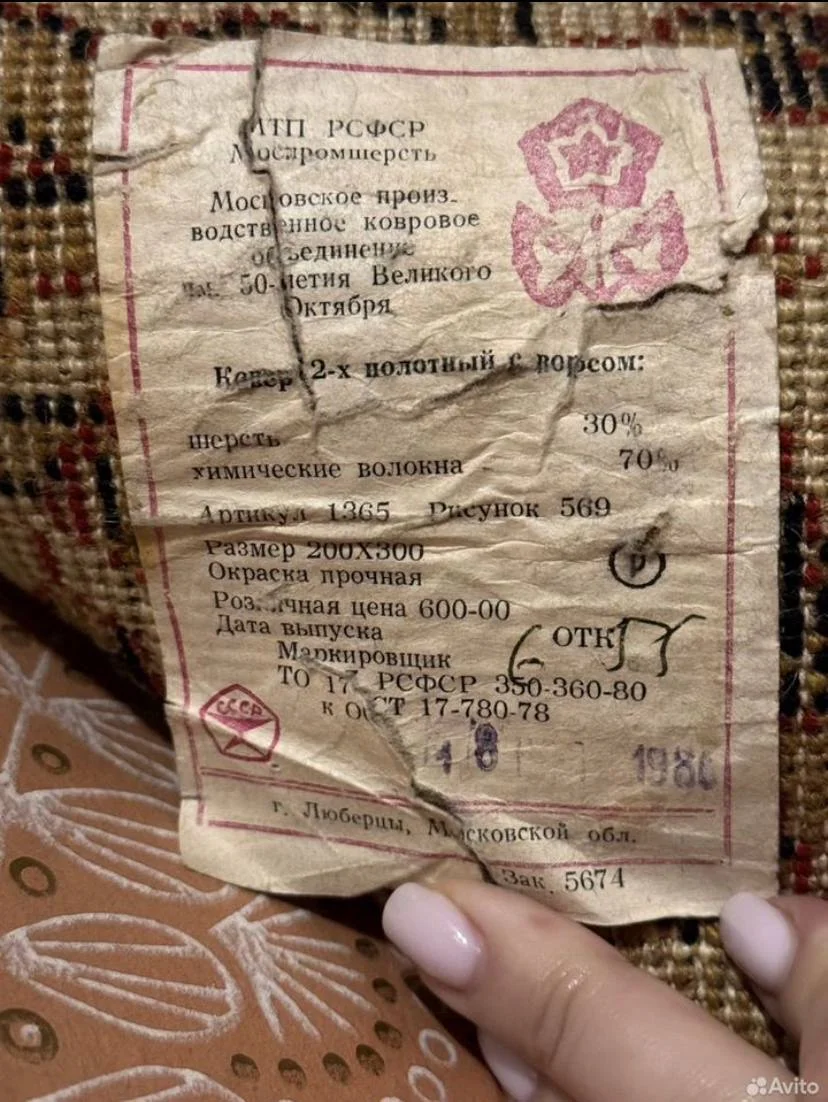 МТП РСФСР
Моспромшерсть
Московское произ-
водственное ковровое
объединение
им. 50-летия Великого
Октября
Ковер 2-х полотный с ворсом:
шерсть 30%
химические волокна - 70%
Артикул 1365 Рисунок 569
Размер 200Х300
Р
Окраска прочная
Розничная цена 600-00
Дата выпуска
ОТК
Маркировщик
ТО 17 РСФСР 350-360-80
к ОСТ 17-780-78
СССР
г. Люберцы, Московской обл.
Зак. 5674
Avito